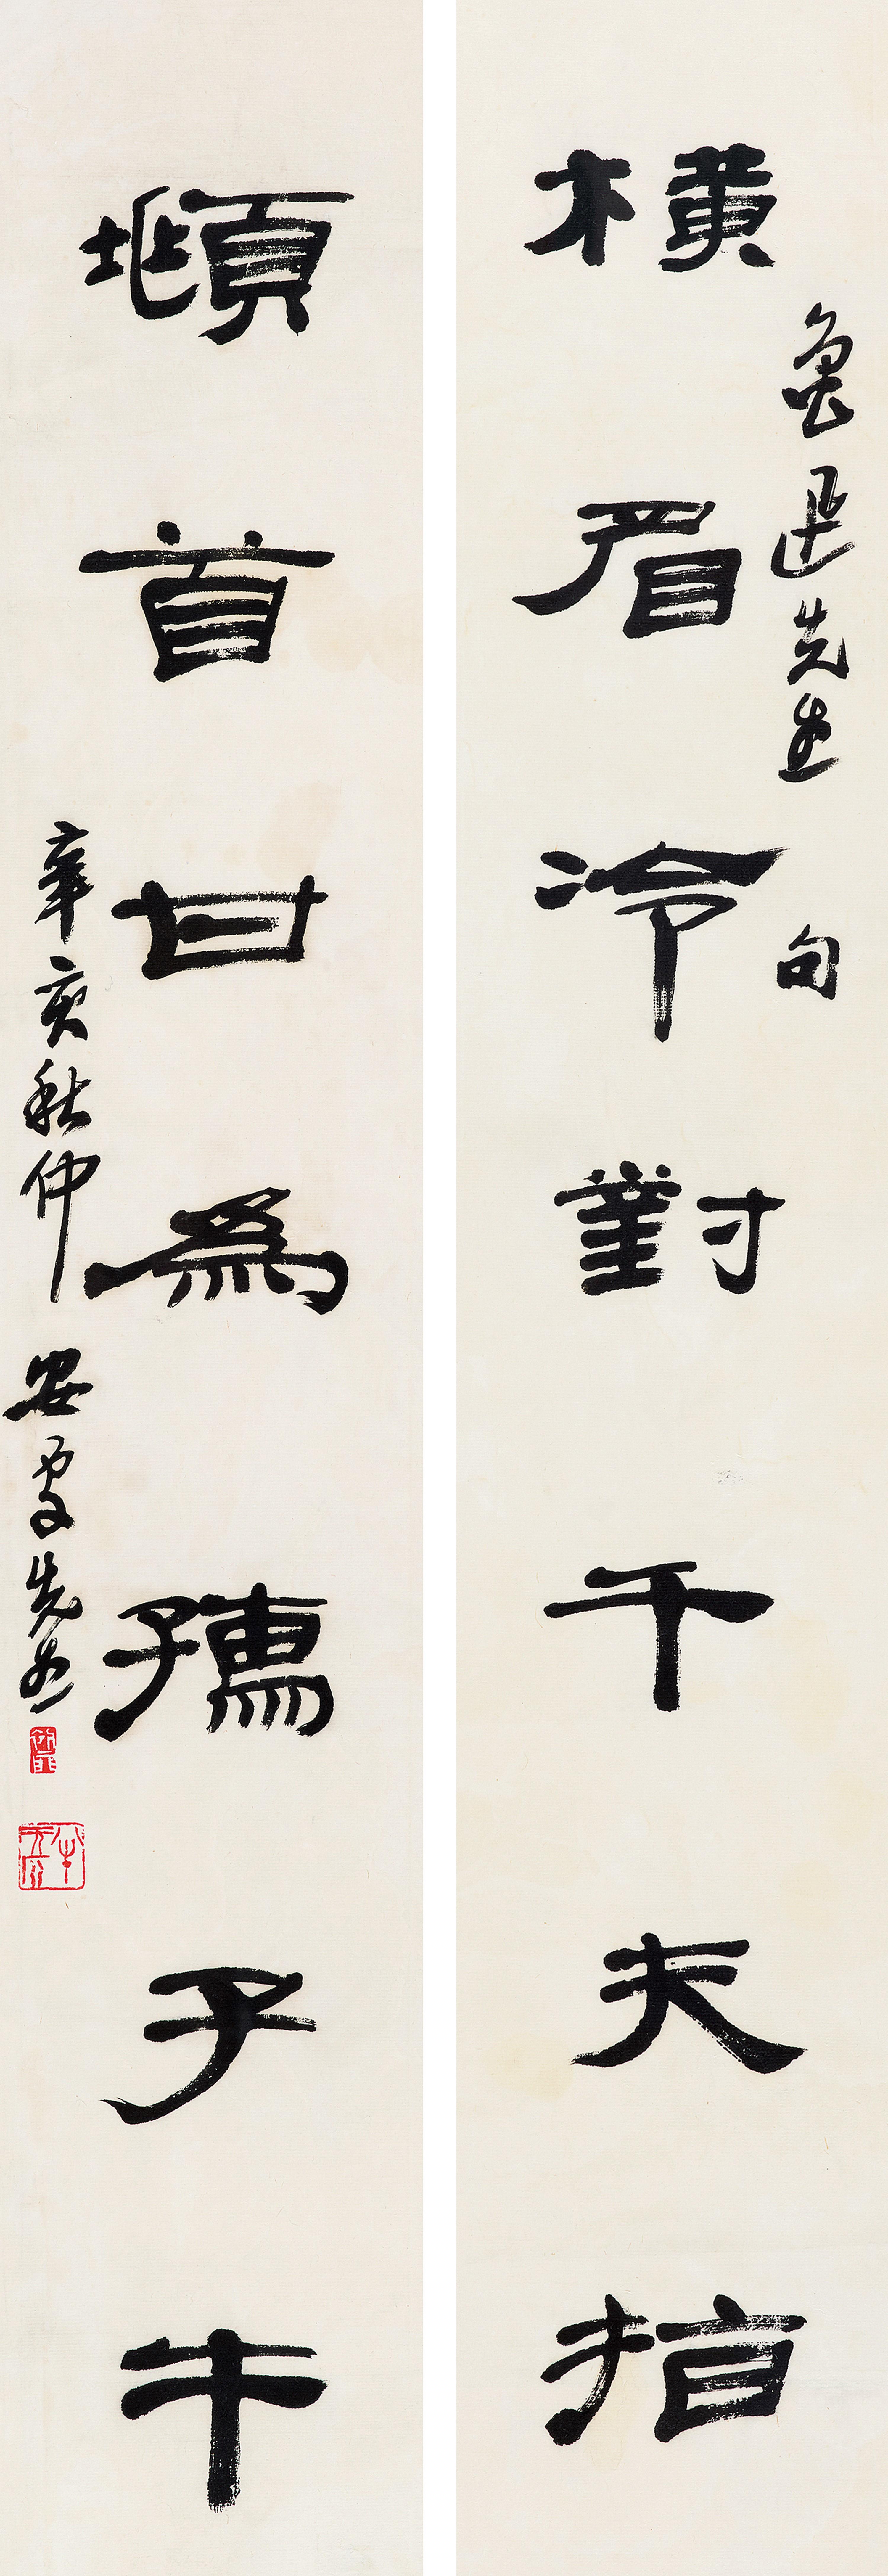 橫眉冷對千夫指
魯迅先生句
頫首甘爲孺子牛
辛亥秋仲安處先生